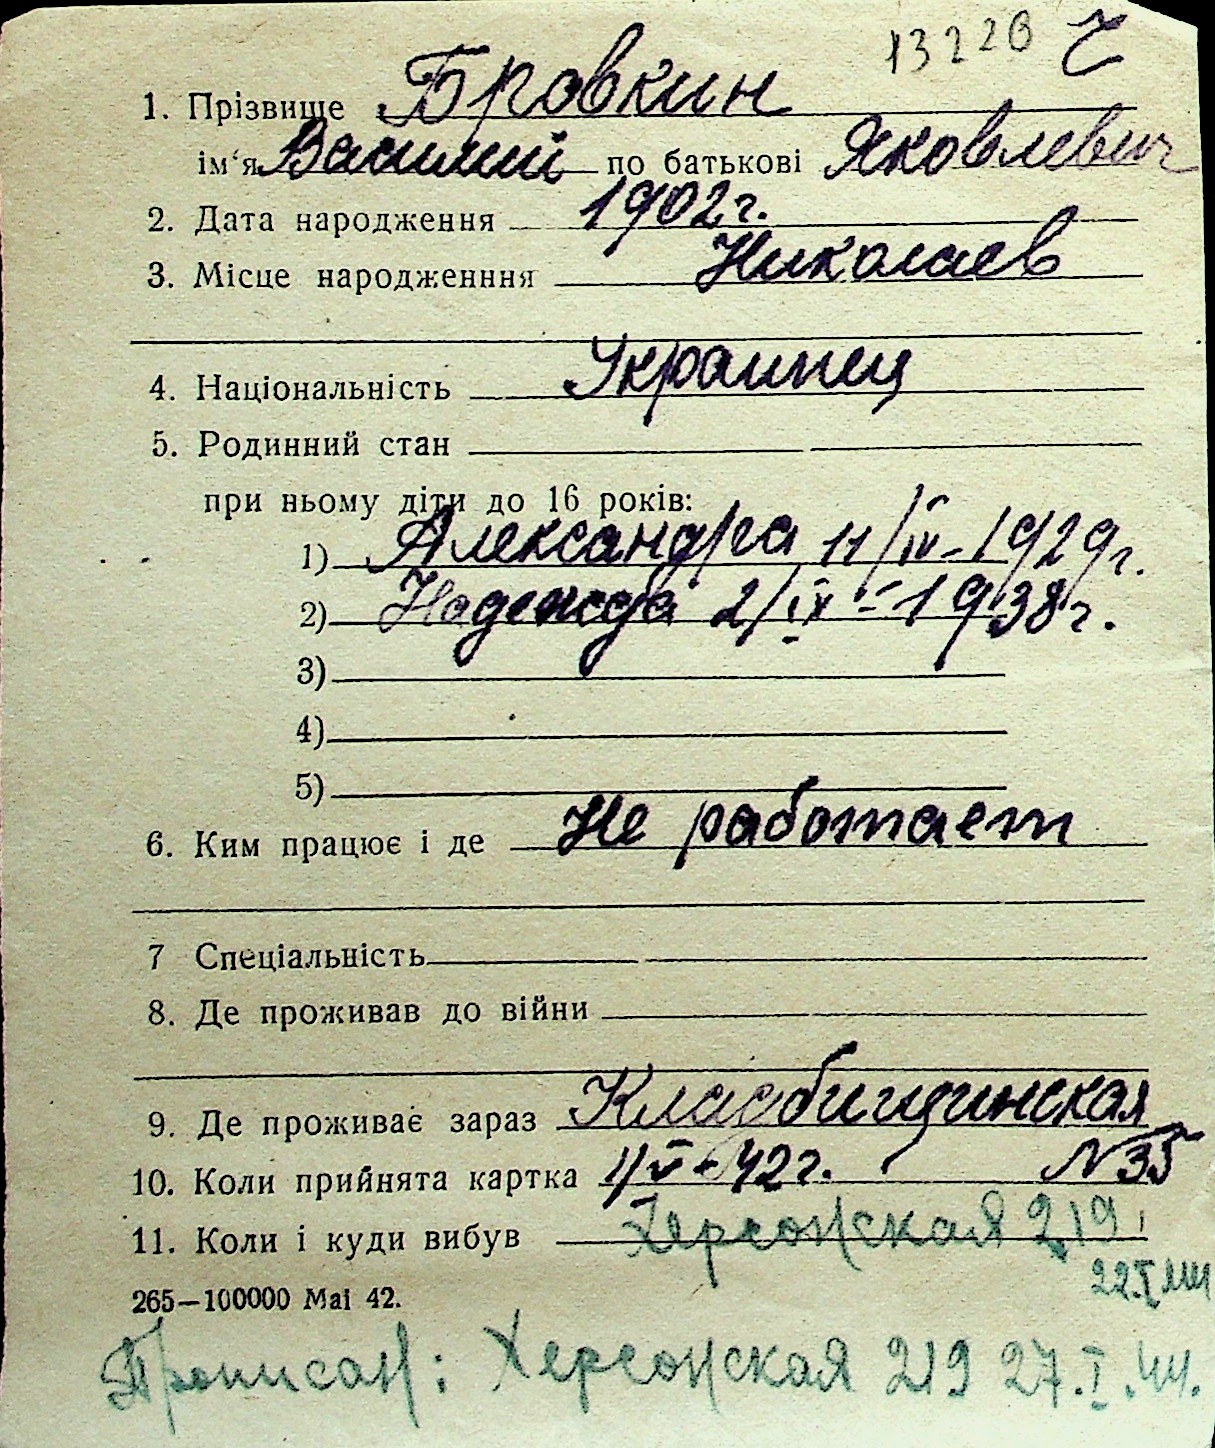 13226 Ч
1. Прізвище Бровкин
ім‘я Василий по батькові Яковлевич
2. Дата народження 1902 г.
3. Місце народженння Николаев
4. Національність Украинец
5. Родинний стан
при ньому діти до 16 років:
1) Александра 11/IV-1929 г.
2) Надежда 2/IX-1938 г.
3)
4)
5)
6. Ким працює і де Не работает
7 Спеціальність
8. Де проживав до війни
9. Де проживає зараз Кладбищинская
10. Коли прийнята картка 1/V-42 г. N 35
11. Коли і куди вибув Херсонская 219
22.I.44
265—100000 Mai 42.
Прописан: Херсонская 219 27.I.44.